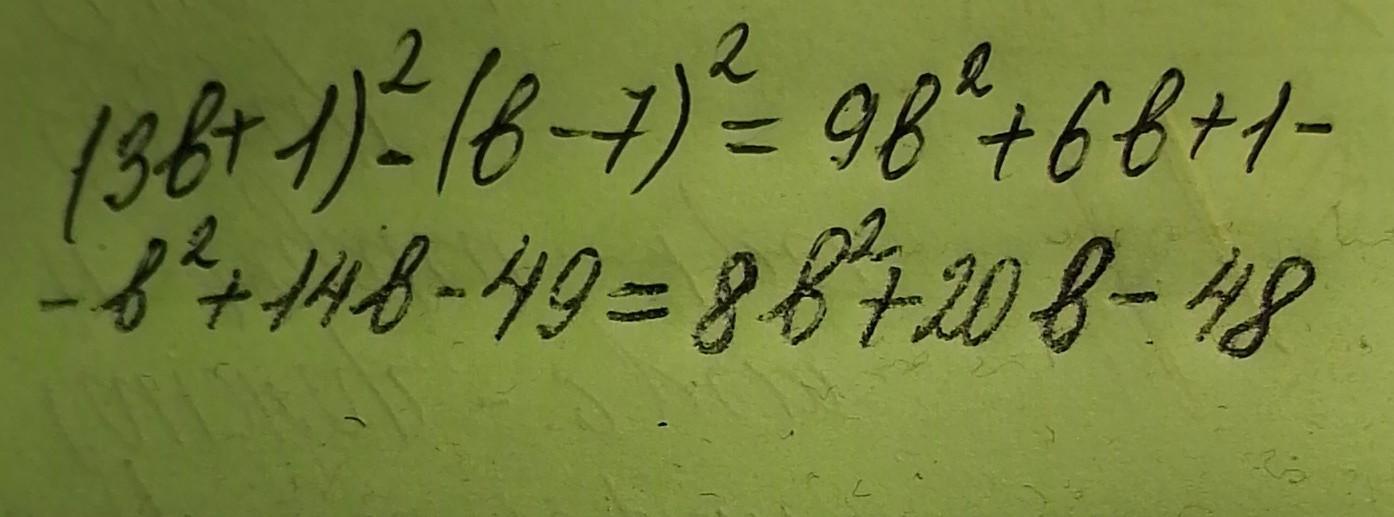 (3b+1)²-(b-7)²=9b²+6b+1-
-b²+14b-49=8b²+20b-48